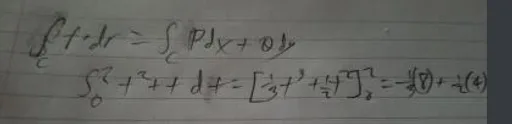 ∫_C f·dr = ∫_C Pdx + Qdy
∫_0^2 t^2 + t dt = [1/3 t^3 + 1/2 t^2]_0^2 = 1/3(8) + 1/2(4)